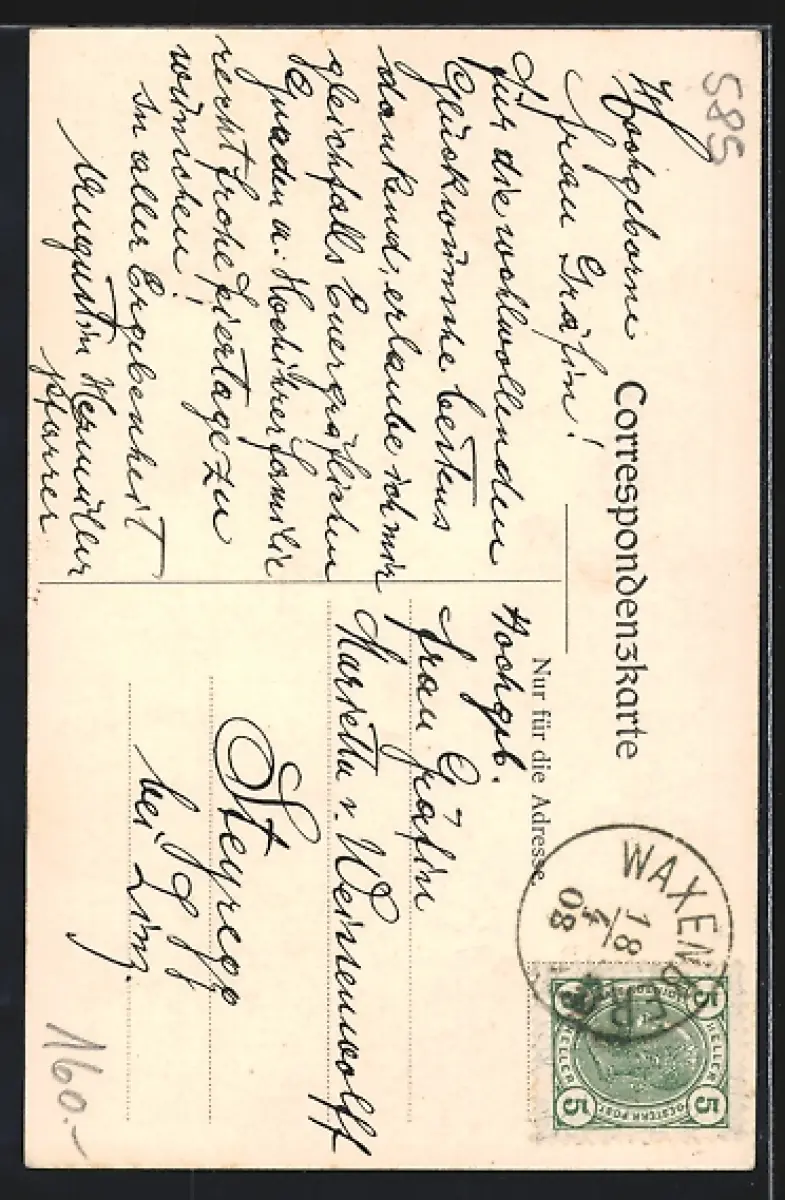 585
Correspondenzkarte
Nur für die Adresse.
Hochgeborne
Frau Gräfin!
Für die wohlwollenden
Glückwünsche bestens
dankend, erlaube ich mir
gleichfalls Euer gräflichen
Gnaden u. Hochihrer Familie
recht frohe Feiertage zu
wünschen!
In aller Ergebenheit
Augustin
Pfarrer
Hochgeb.
Frau Gräfin
Marietta v. Weissenwolff
Steyregg
bei Linz.
WAXENBERG
18/4
08
5 5
HELLER HELLER
OESTERR. POST
5 5
160.-